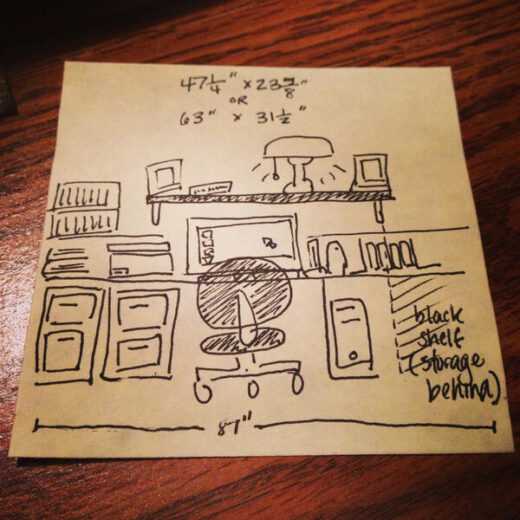 47 1/4" x 23 5/8"
OR
63" x 31 1/2"
black
shelf
(storage
behind)
87"